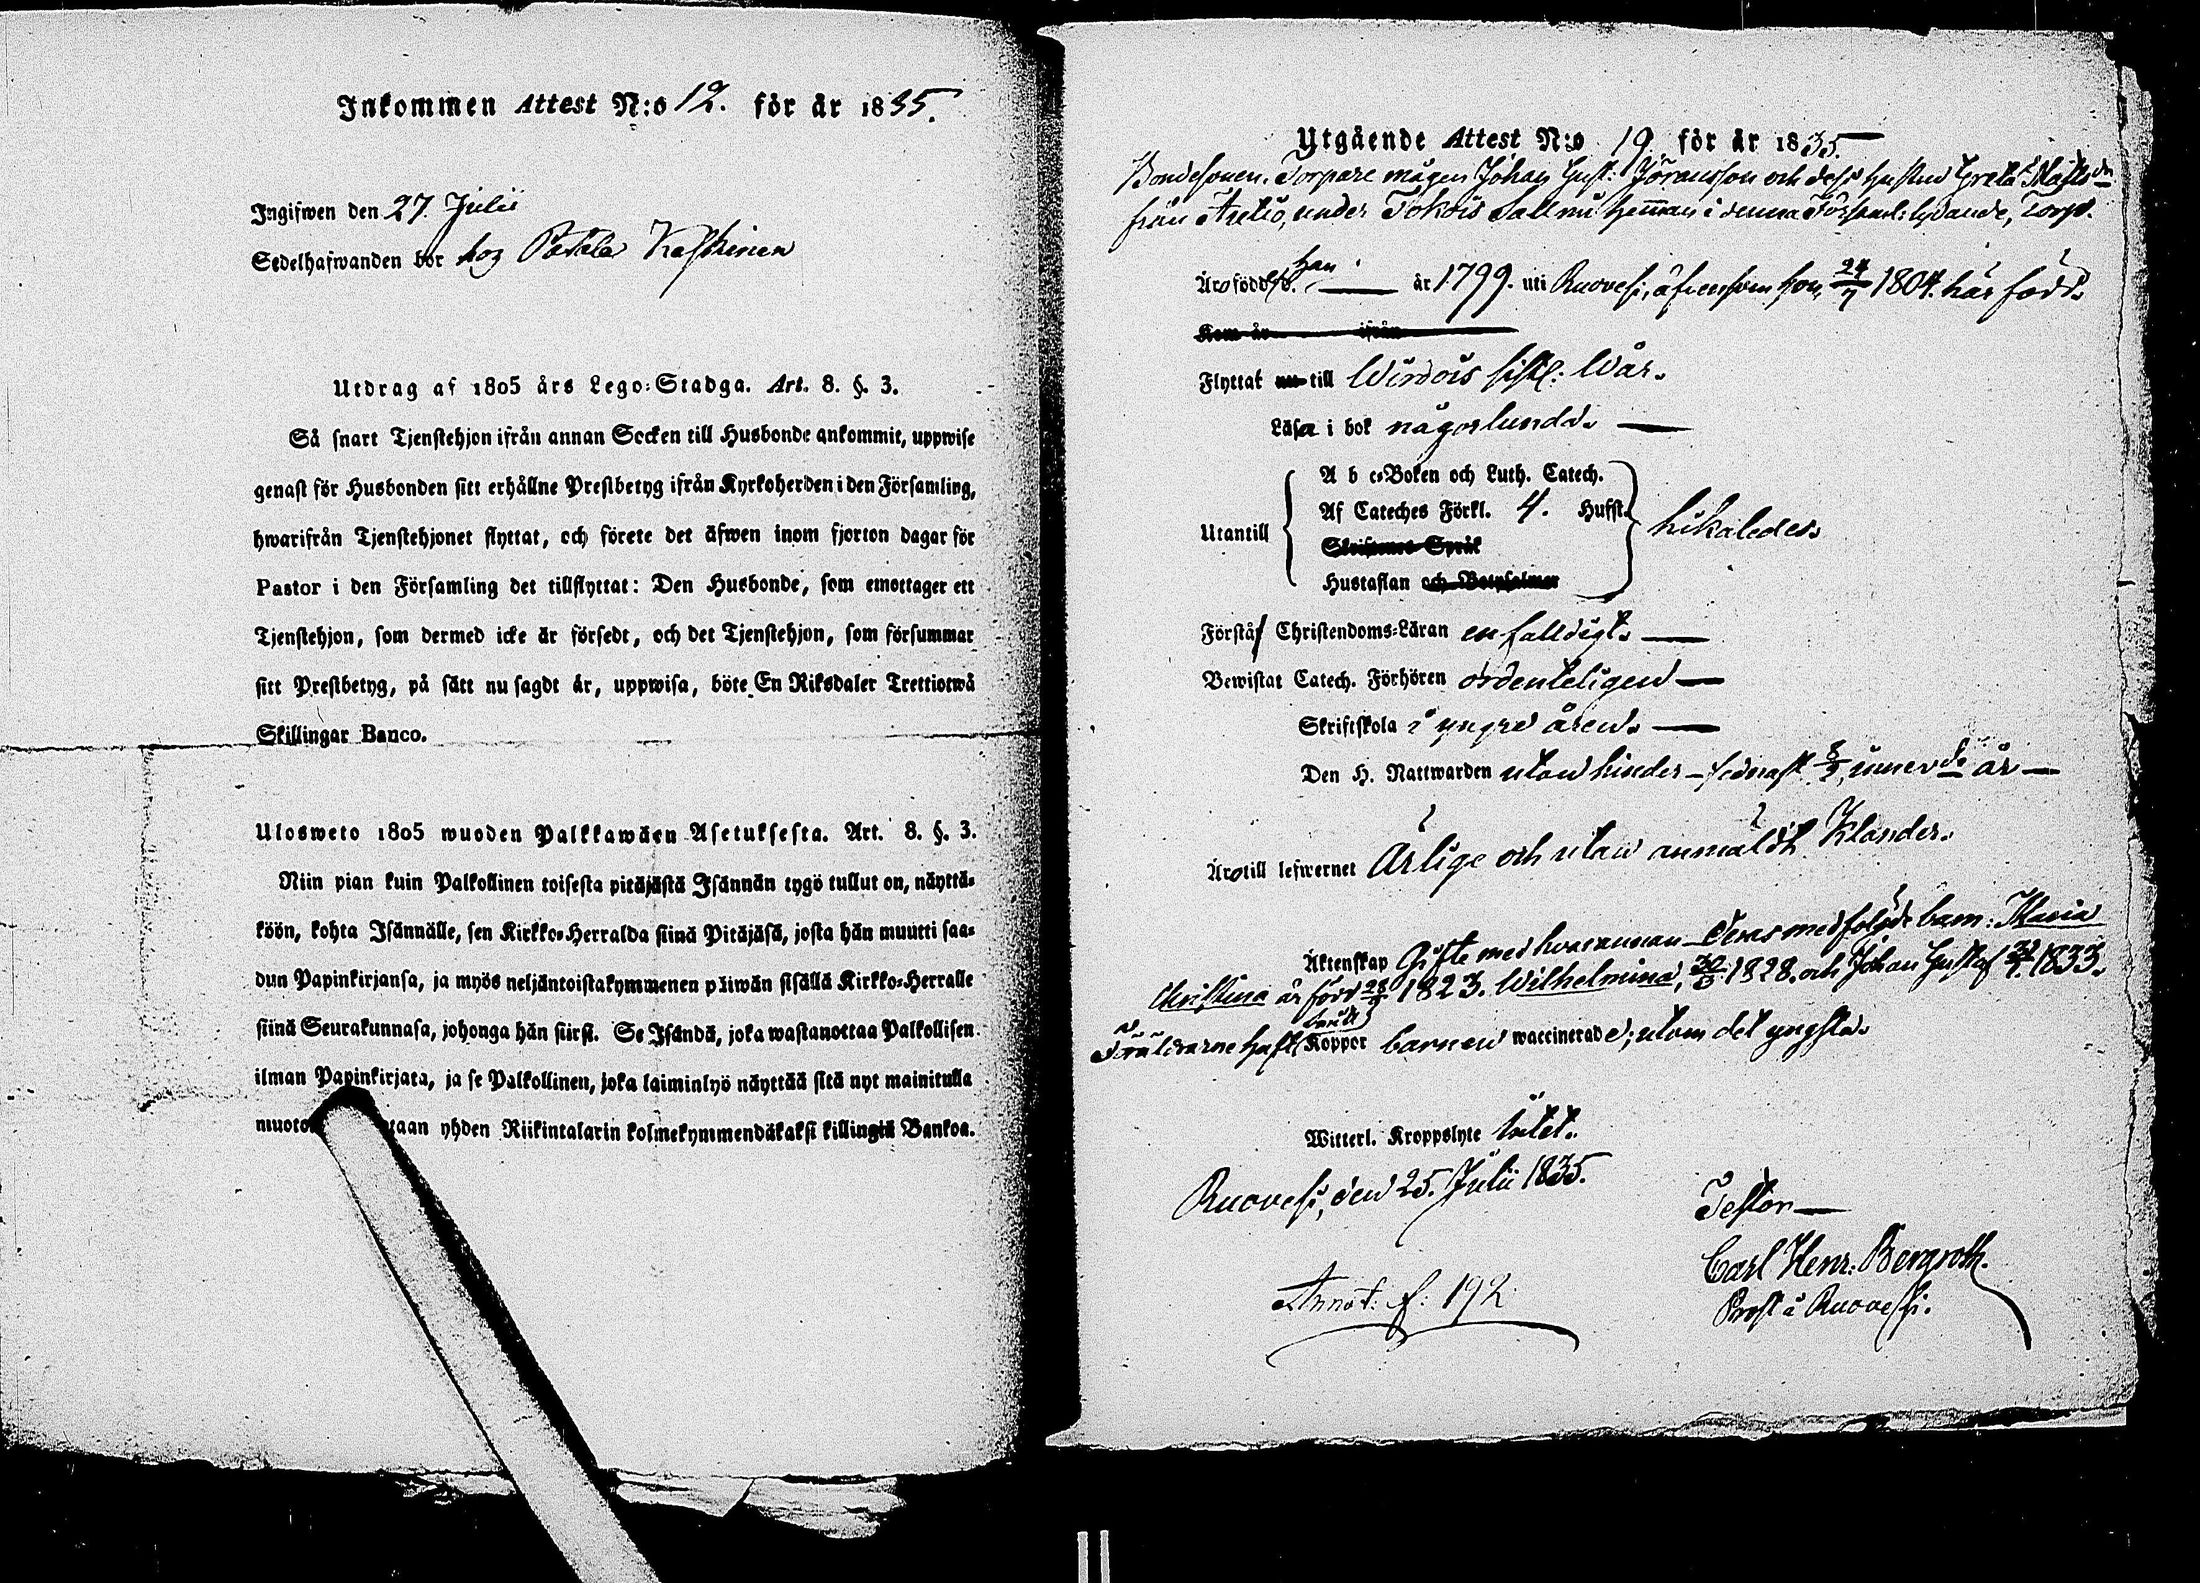 Inkommen Attest N:o 12. för år 1835.
Ingifwen den 27. Julii
Sedelhafwanden bor hos Keskinen
Utdrag af 1805 års Lego-Stadga. Art. 8. §. 3.
Så snart Tjenstehjon ifrån annan Socken till Husbonde ankommit, uppwise
genast för Husbonden sitt erhållne Prestbetyg ifrån Kyrkoherden i den Församling,
hwarifrån Tjenstehjonet flyttat, och förete det äfwen inom fjorton dagar för
Pastor i den Församling det tillflyttat: Den Husbonde, som emottager ett
Tjenstehjon, som dermed icke är försedt, och det Tjenstehjon, som försummar
sitt Prestbetyg, på sätt nu sagdt är, uppwisa, böte En Riksdaler Trettiotwå
Skillingar Banco.
Ulosweto 1805 wuoden Palkkawäen Asetuksesta. Art. 8. §. 3.
Niin pian kuin Palkollinen toisesta pitäjästä Isännän tygö tullut on, näyttä-
köön, kohta Isännälle, sen Kirkko-Herralda siinä Pitäjäsä, josta hän muutti saa-
dun Papinkirjansa, ja myös neljäntoistakymmenen päiwän sisällä Kirkko-Herralle
siinä Seurakunnasa, johonga hän siirsi. Se Isändä, joka wastanottaa Palkollisen
ilman Papinkirjata, ja se Palkollinen, joka laiminlyö näyttää sitä nyt mainitulla
muoto taan yhden Riikintalarin kolmekymmendäkaksi killingiä Bankoa.
Utgående Attest N:o 19 för år 1835.
Bondesonen, Torpare mågen Johan Gust: Jöransson och dess hustru Greta Matts dr
från Aulio, under Tokois hemman i denna lydande, Torp.
Äro född han år 1799. uti Ruovesi, äfvensom hon 24/7 1804. här född.
Kom år ifrån
Flyttat nu till Wirdois sistl. Wår.
Läsa i bok någorlunda.
A b c-Boken och Luth. Catech.
Af Cateches Förkl. 4. Hufst.
Utantill likaledes.
Skriftenes Språk
Hustaflan och Botpsalmer
Förstå Christendoms-Läran enfalldigt.
Bewistat Catech. Förhören ordenteligen
Skriftskola i yngre åren.
Den H. Nattwarden utan hinder - sednast innev de år
Äro till lefwernet Ärlige och utan anmäldt Klander.
Äktenskap Gifte med hvarannan - Deras medföljde barn: Maria
Christina är född 1823. Wilhelmina, 1828. och Johan Gustaf 1833.
Föräldrarne haft Koppor barnen waccinerade, utom det yngsta.
Witterl. Kroppslyte intet.
Ruovesi, den 25. Julii 1835.
Testor
Carl Henr: Bergroth.
Prost i Ruovesi.
Annot: f: 192